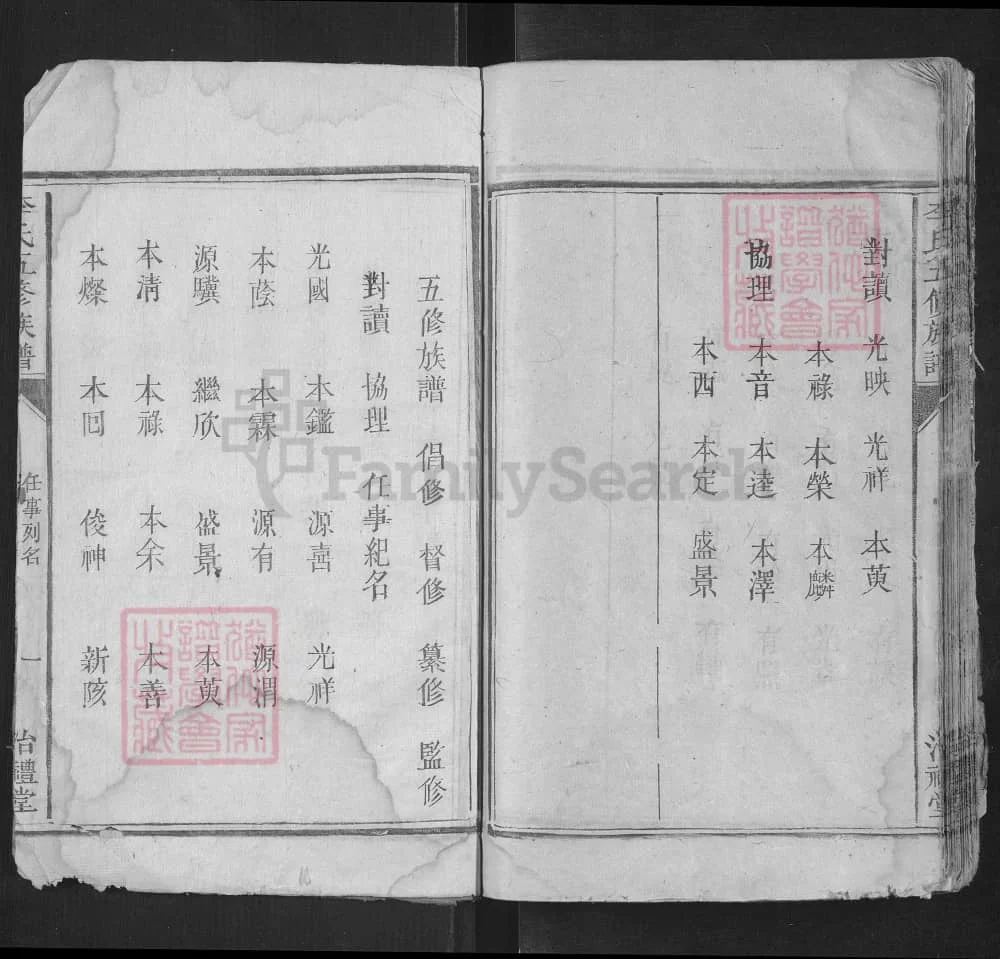 對讀 光映 光祥 本萸
本祿 本榮 本麟
協理 本音 本逵 本澤
本西 本定 盛景
五修族譜 倡修 督修 纂修 監修
對讀 協理 任事紀名
光國 本鑑 源喜 光祥
本蔭 本霖 源有 源渭
源驥 繼欣 盛景 本萸
本清 本祿 本余 本善
本燦 本回 俊神 新陔
李氏五修族譜 任事列名 一 治禮堂
FamilySearch